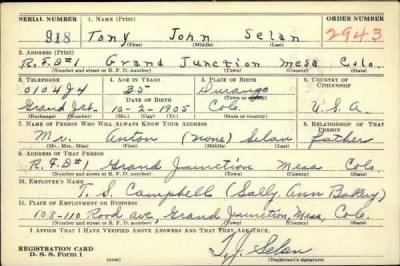 SERIAL NUMBER 1. NAME (Print) ORDER NUMBER
918 Tony John Selan 2943
(First) (Middle) (Last)
2. ADDRESS (Print)
R.F.D#1 Grand Junction Mesa Colo.
(Number and street or R. F. D. number) (Town) (County) (State)
3. TELEPHONE 4. AGE IN YEARS 5. PLACE OF BIRTH 6. COUNTRY OF CITIZENSHIP
0104J4 35 Durango
DATE OF BIRTH (Town or county)
Grand Jct. 10-2-1905 Colo. U.S.A.
(Exchange) (Number) (Mo.) (Day) (Yr.) (State or country)
7. NAME OF PERSON WHO WILL ALWAYS KNOW YOUR ADDRESS 8. RELATIONSHIP OF THAT PERSON
Mr. Anton (none) Selan father
(Mr., Mrs., Miss) (First) (Middle) (Last)
9. ADDRESS OF THAT PERSON
R.F.D#1 Grand Junction Mesa Colo
(Number and street or R. F. D. number) (Town) (County) (State)
10. EMPLOYER'S NAME
T. S. Campbell (Sally Ann Bakery)
11. PLACE OF EMPLOYMENT OR BUSINESS
108-110 Rood ave, Grand Junction, Mesa, Colo.
(Number and street or R. F. D. number) (Town) (County) (State)
I AFFIRM THAT I HAVE VERIFIED ABOVE ANSWERS AND THAT THEY ARE TRUE.
REGISTRATION CARD
D. S. S. Form 1 (over) T.J. Selan
(Registrant's signature)